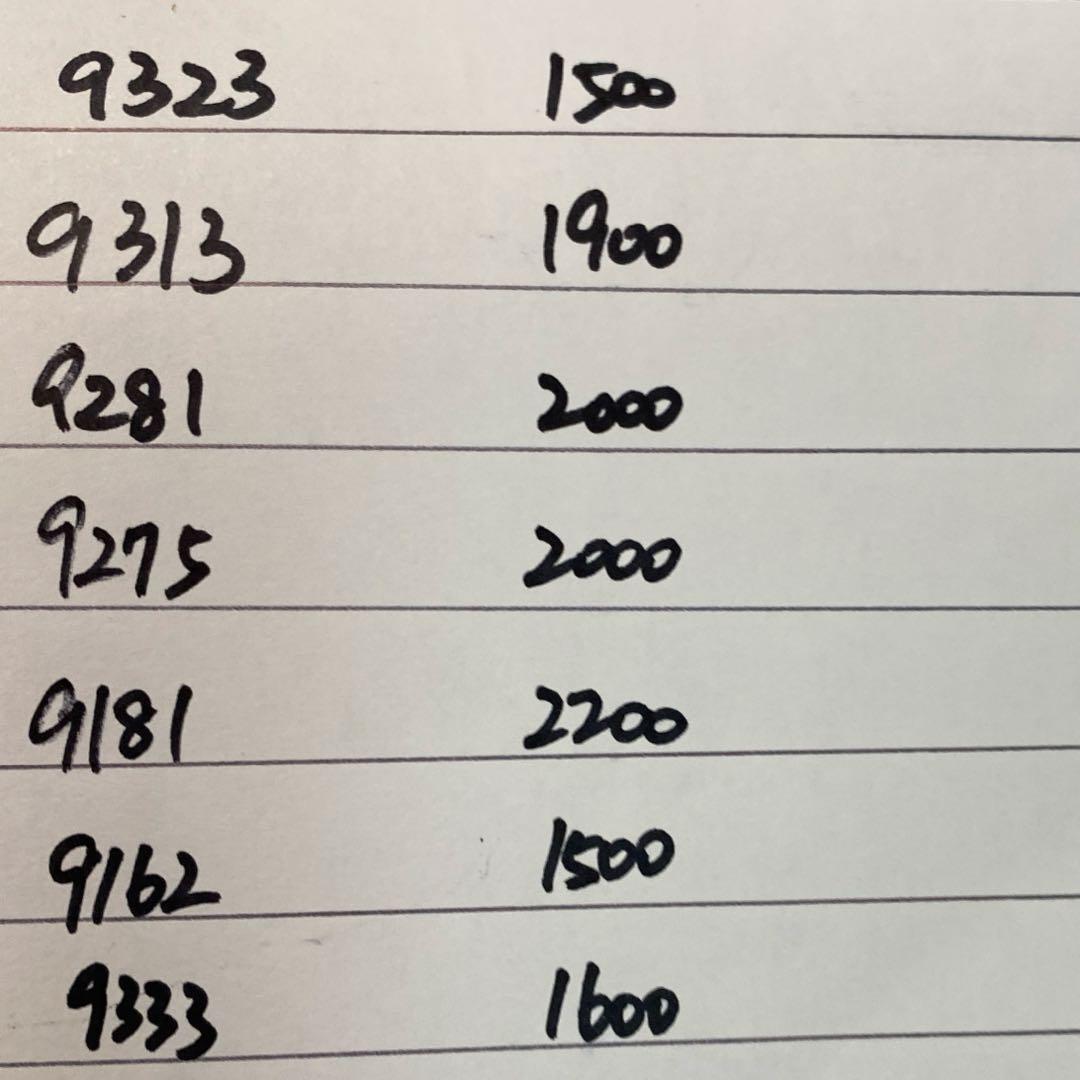 9323 1500
9313 1900
9281 2000
9275 2000
9181 2200
9162 1500
9333 1600